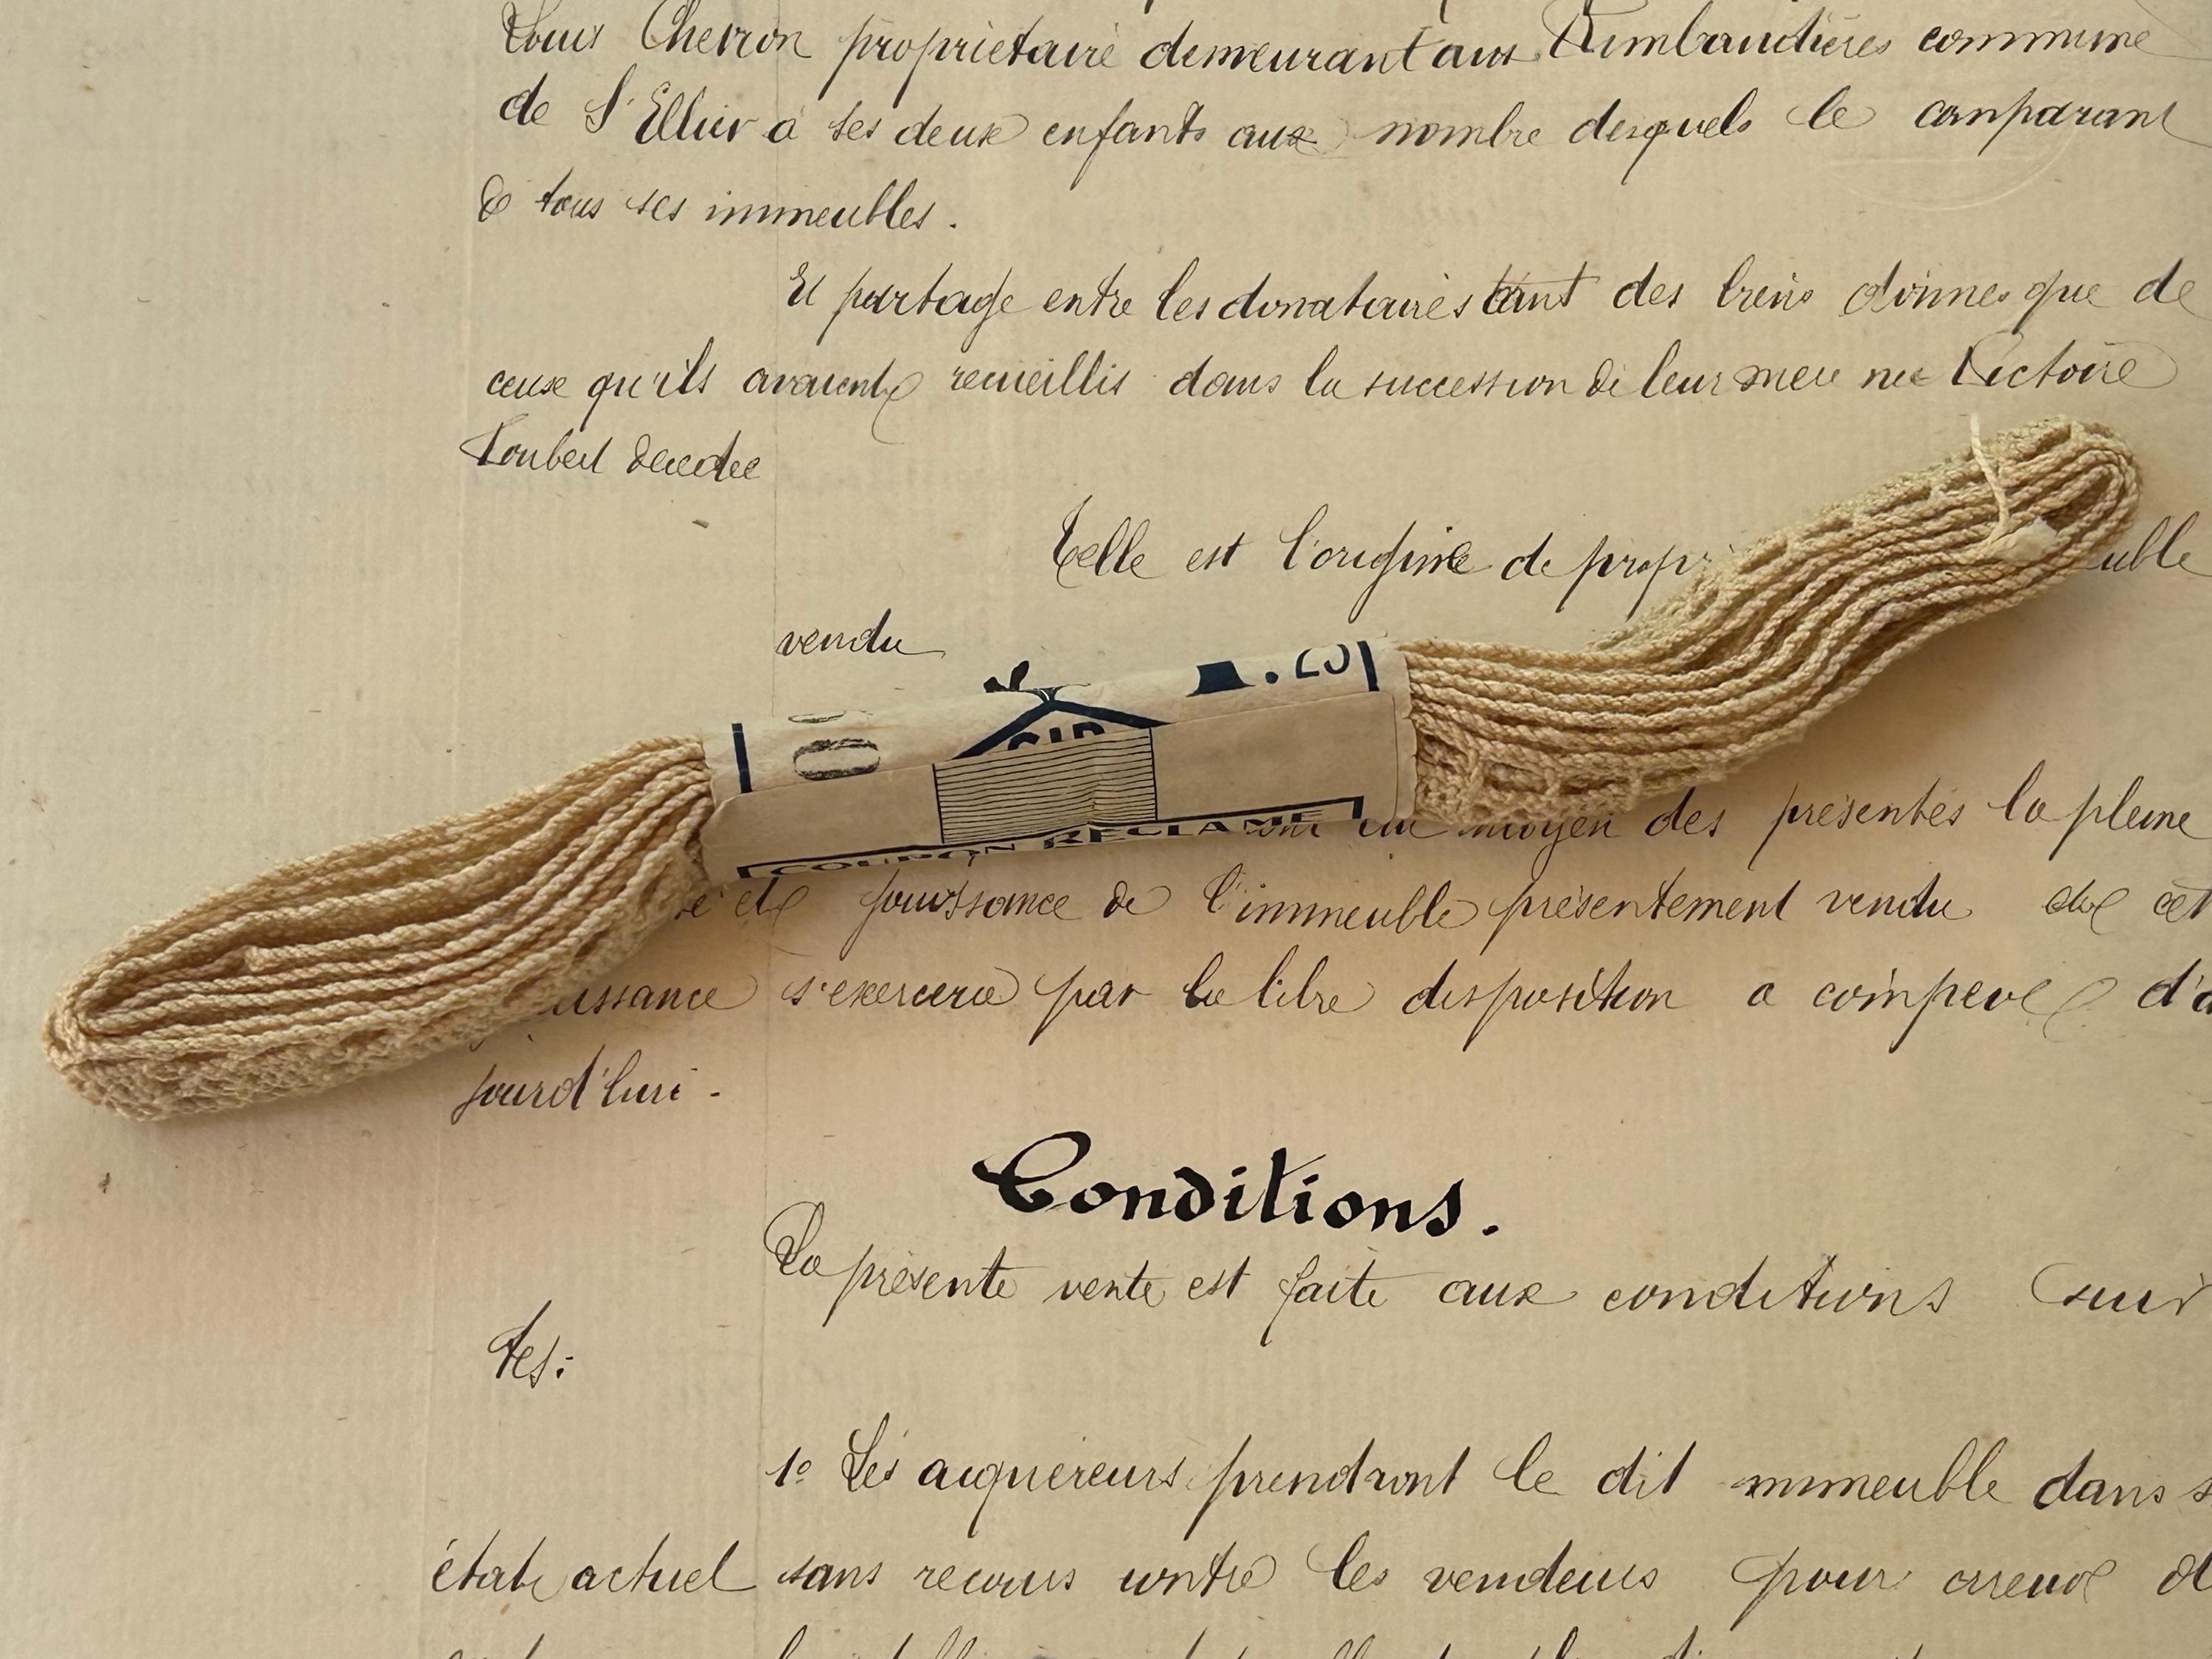 Louis Chevron propriétaire demeurant aux Rimbaudières commune
de St Ellier à ses deux enfants aux nombre desquels le comparant
& tous ses immeubles.
Et partage entre les donataires tant des biens donnes que de
ceux qu'ils avaient recueillis dans la succession de leur mere nee Victoire
decedee
Telle est l'origine de propr uble
vendu
.25
COUPON RECLAME
au moyen des présentes la pleine
et jouissance de l'immeuble présentement vendu et cet
uissance s'exercera par la libre disposition a compter d'a
jourd'hui.
Conditions.
La présente vente est faite aux conditions suiv
tes:
1º Les acquereurs prendront le dit immeuble dans s
état actuel sans recours contre les vendeurs pour erreur d